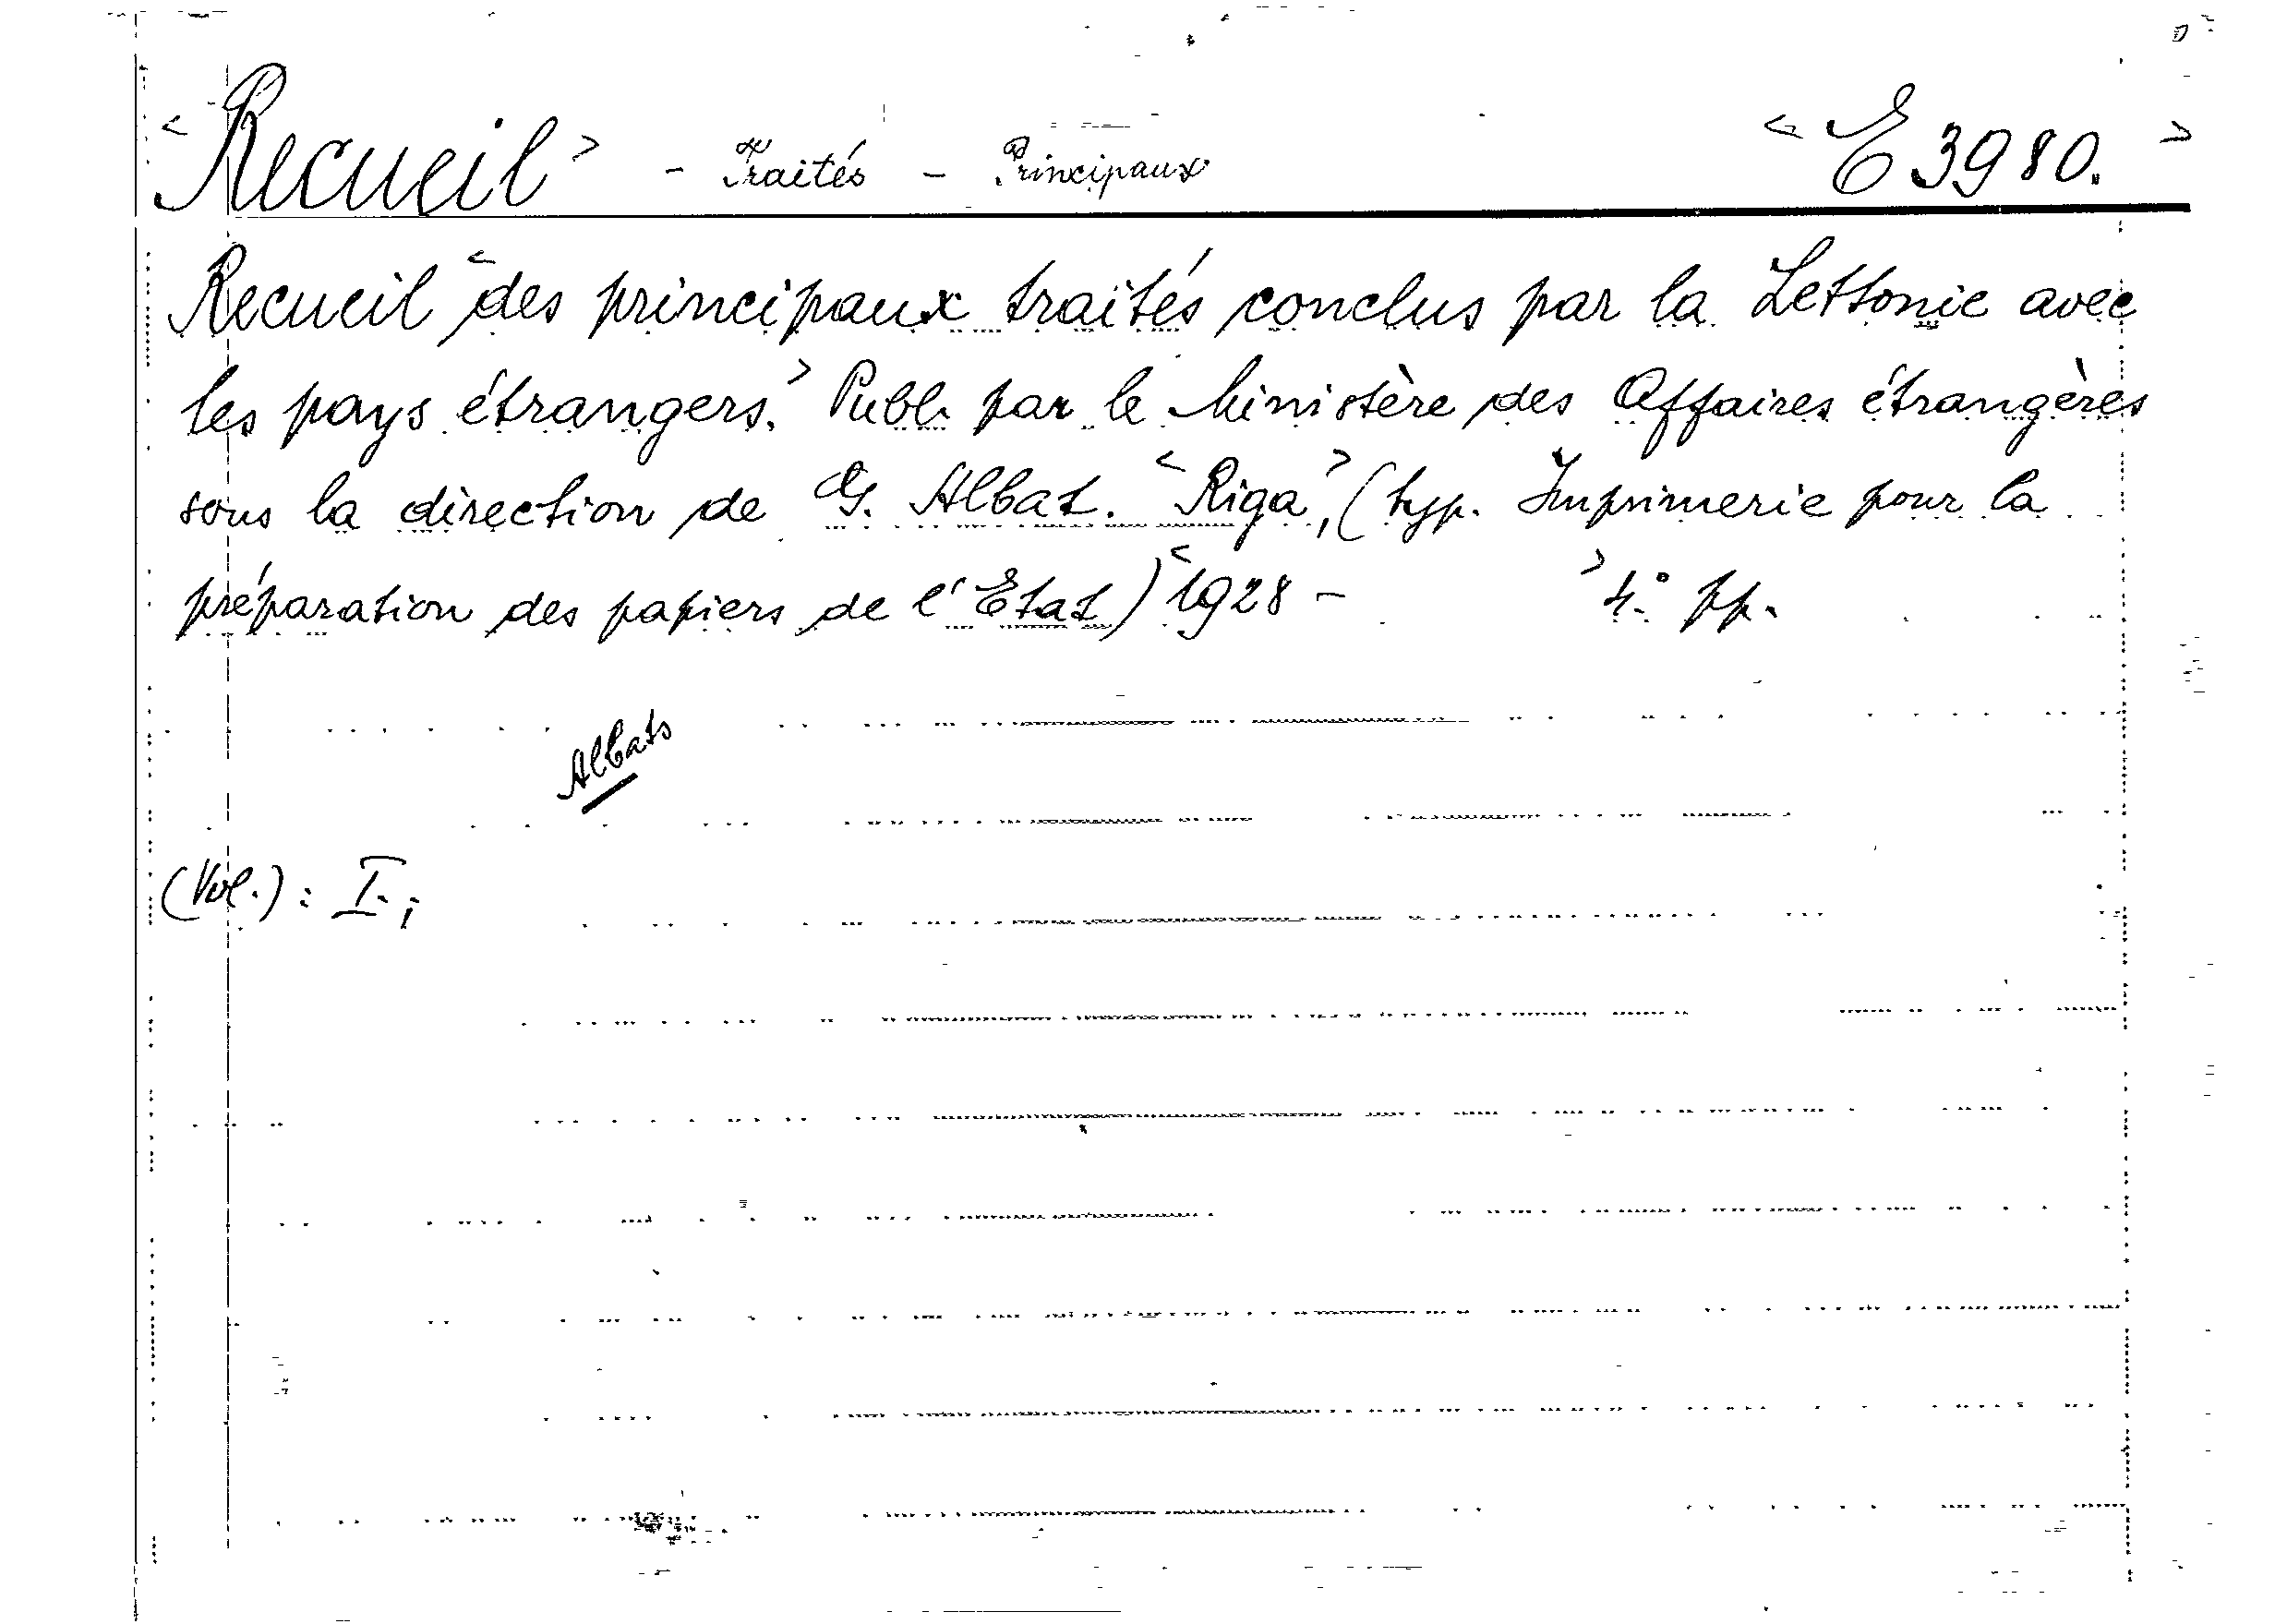 <Recueil> - Traités - Principaux <E 3980.>
Recueil <des principaux traités conclus par la Lettonie avec
les pays étrangers.> Publ. par le Ministère des Affaires étrangères
sous la direction de G. Albat. <Riga>, (typ. Imprimerie pour la
préparation des papiers de l'Etat) <1928 - > 4° pp.
Albats
(Vol.): I.;